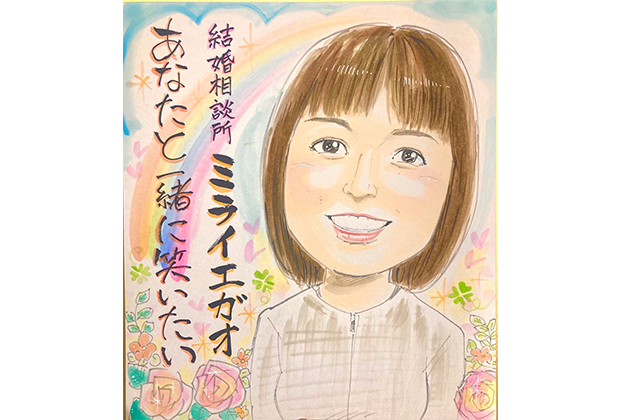 結婚相談所
ミライエガオ
あなたと一緒に笑いたい